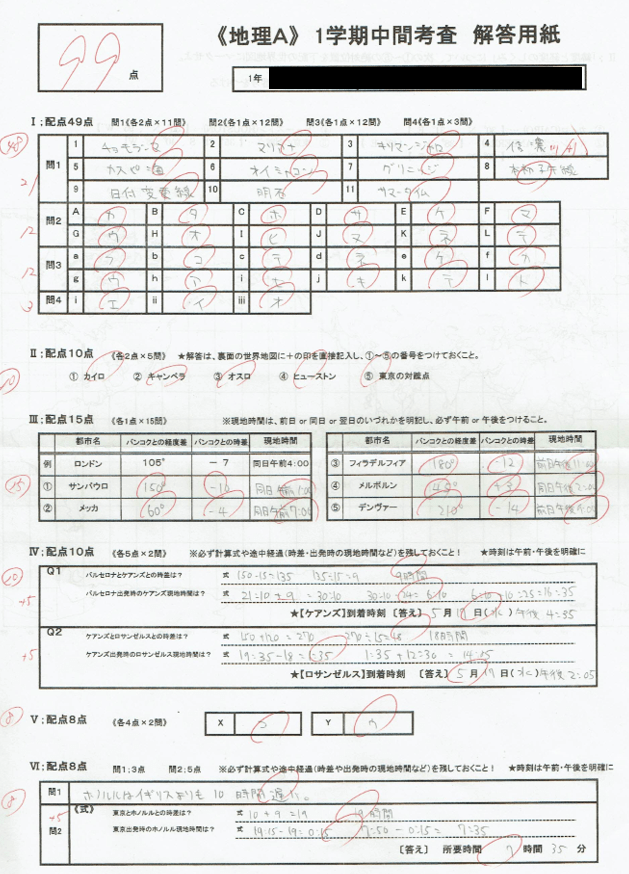 《地理A》 1学期中間考査 解答用紙
99 点
1年
Ⅰ:配点49点 問1《各2点×11問》 問2《各1点×12問》 問3《各1点×12問》 問4《各1点×3問》
48
問1
1 チョモランマ 2 マリアナ 3 キリマンジャロ 4
5 カスピ海 6 オイミャコン 7 グリニッジ 8
9 日付変更線 10 明石 11 サマータイム
問2
A カ B タ C ホ D サ E ケ F マ
G ウ H オ I ヒ J ヌ K ネ L テ
12
問3
a フ b コ c テ d ネ e ケ f
g ウ h i セ j キ k テ l ト
12
問4 i エ ii イ iii オ
3
Ⅱ:配点10点 《各2点×5問》 ★解答は、裏面の世界地図に+の印を直接記入し、①~⑤の番号をつけておくこと。
10
① カイロ ② キャンベラ ③ オスロ ④ ヒューストン ⑤ 東京の対蹠点
Ⅲ:配点15点 《各1点×15問》 ※現地時間は、前日 or 同日 or 翌日のいづれかを明記し、必ず午前 or 午後をつけること。
都市名 バンコクとの経度差 バンコクとの時差 現地時間 都市名 バンコクとの経度差 バンコクとの時差 現地時間
例 ロンドン 105° -7 同日午前4:00 ③ フィラデルフィア 180° -12 前日午後11:00
15
① サンパウロ 150° -10 同日午前1:00 ④ メルボルン 45° +3 同日午後2:00
② メッカ 60° -4 同日午前7:00 ⑤ デンヴァー 210° -14 前日午後9:00
Ⅳ:配点10点 《各5点×2問》 ※必ず計算式や途中経過(時差・出発時の現地時間など)を残しておくこと! ★時刻は午前・午後を明確に
10
Q1
バルセロナとケアンズとの時差は? 式 150-15=135 135÷15=9 9時間
バルセロナ出発時のケアンズ現地時間は? 式 21:10+9=30:10 30:10-24=6:10
+5
★【ケアンズ】到着時刻 〔答え〕 5月 日(水) 午後 4:35
Q2
ケアンズとロサンゼルスとの時差は? 式 150+120=270 270÷15=18 18時間
ケアンズ出発時のロサンゼルス現地時間は? 式 19:35-18=1:35 1:35+12:30=14:05
+5
★【ロサンゼルス】到着時刻 〔答え〕 5月19日(水) 午後 2:05
Ⅴ:配点8点 《各4点×2問》 X コ Y ウ
8
Ⅵ:配点8点 問1;3点 問2;5点 ※必ず計算式や途中経過(時差や出発時の現地時間など)を残しておくこと! ★時刻は午前・午後を明確に
8
問1 ホノルルはイギリスよりも 10 時間遅い。
《式》
+5
問2
東京とホノルルとの時差は? 式 10+9=19 19時間
東京出発時のホノルル現地時間は? 式 19:15-19=0:15 7:50-0:15=7:35
〔答え〕 所要時間 7 時間 35 分